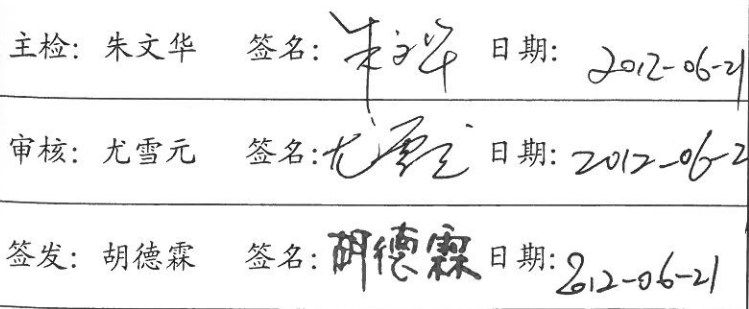 主检: 朱文华 签名: 朱文华 日期: 2012-06-21
审核: 尤雪元 签名: 尤雪元 日期: 2012-06-2
签发: 胡德霖 签名: 胡德霖 日期: 2012-06-21